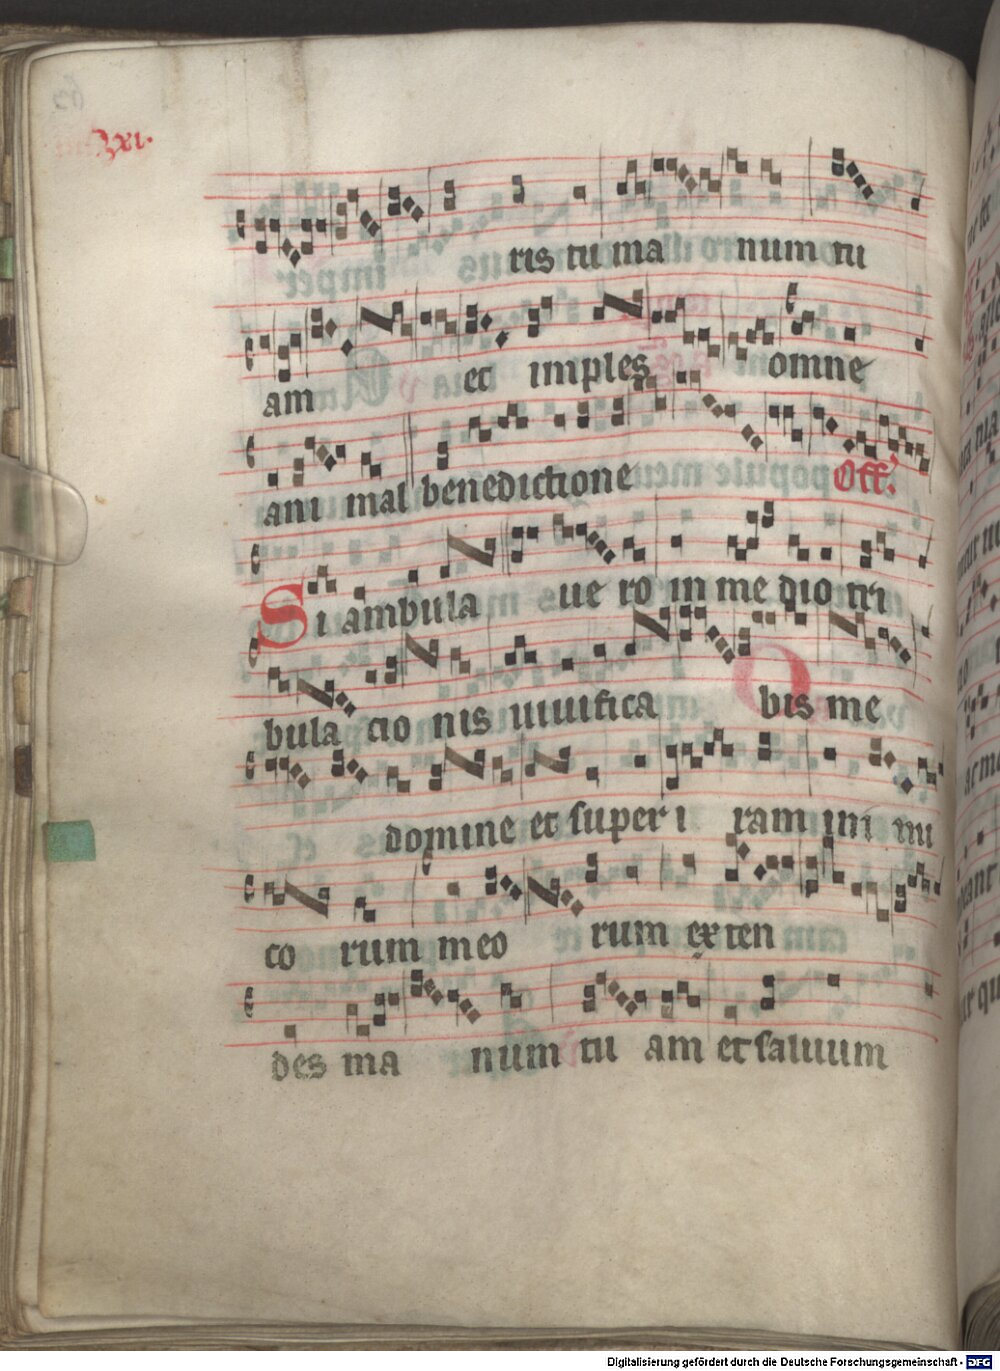 ris tu ma num tu
am et imples omne
ani mal benedictione Off.
Si ambula ue ro in me dio tri
bula cio nis uiuifica bis me
domine et super i ram ini mi
co rum meo rum exten
des ma num tu am et saluum
Digitalisierung gefördert durch die Deutsche Forschungsgemeinschaft - DFG